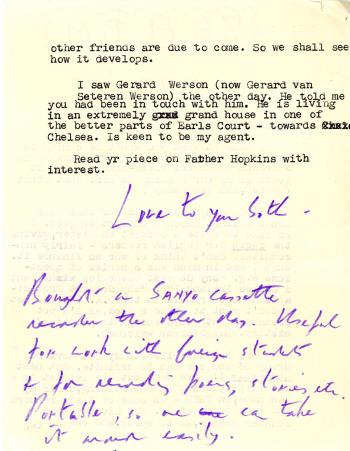 other friends are due to come. So we shall see
how it develops.
I saw Gerard Werson (now Gerard van
Seteren Werson) the other day. He told me
you had been in touch with him. He is living
in an extremely grand house in one of
the better parts of Earls Court - towards
Chelsea. Is keen to be my agent.
Read yr piece on Father Hopkins with
interest.
Love to you both -
Bought a SANYO cassette
recorder the other day. Useful
for work with foreign students
& for recording poems, stories, etc.
Portable, so one can take
it around easily.